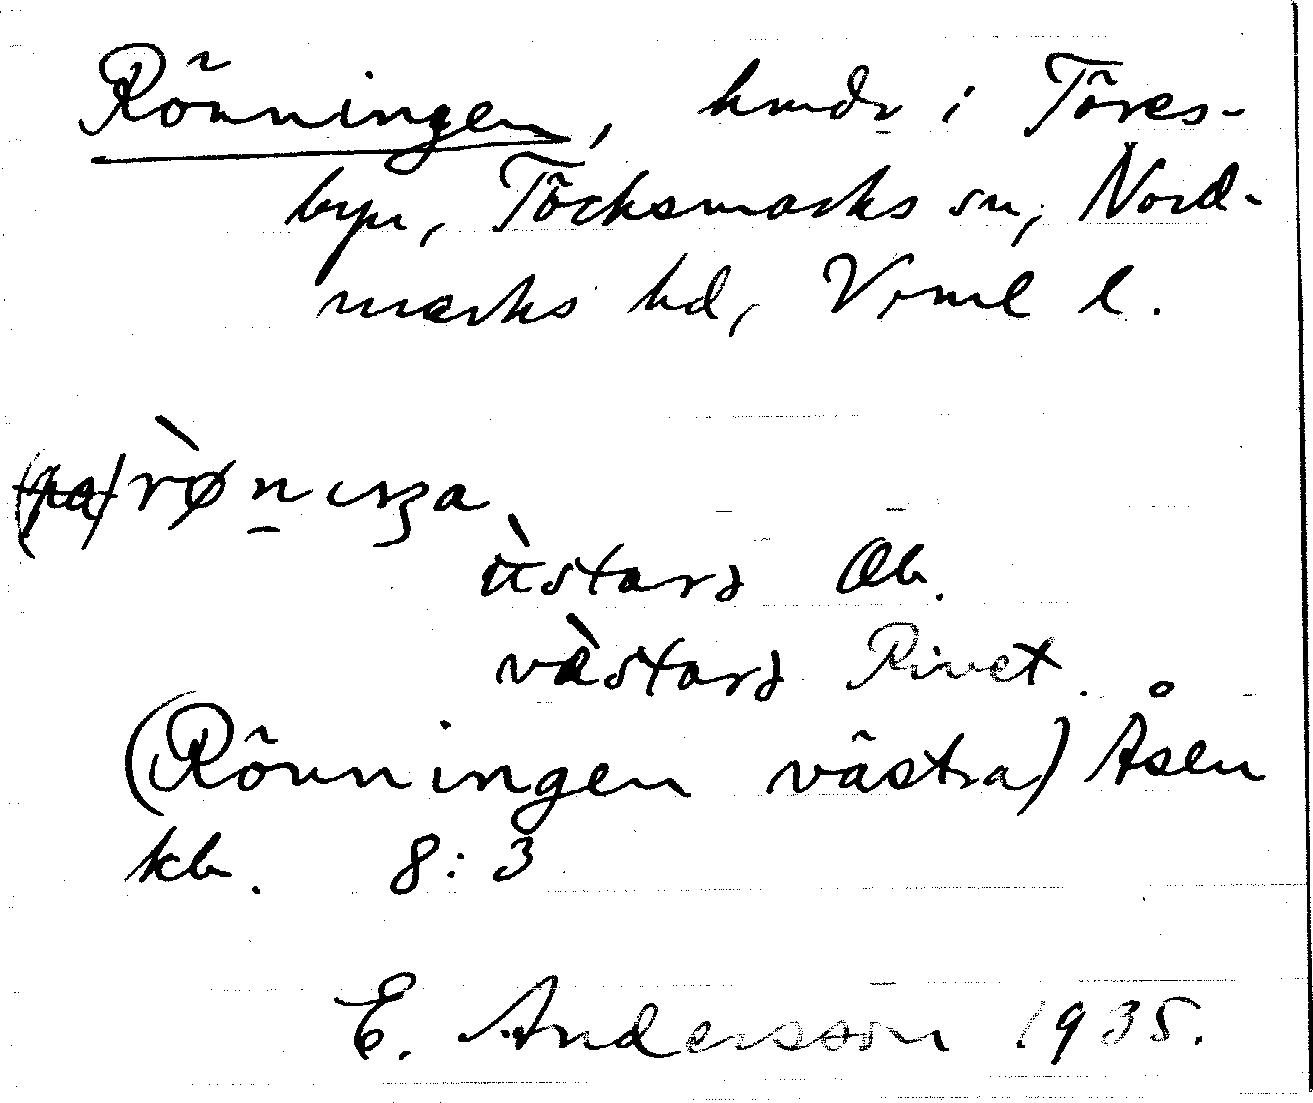 Rönningen, hmdr i Töres-
byn, Töcksmarks sn, Nord-
marks hd, Vrml l.
(pa) rø̀nıŋa
üstarj Ob.
västarj Rivet.
(Rönningen västra) Åsen
kb. 8:3
E. Andersson 1935.